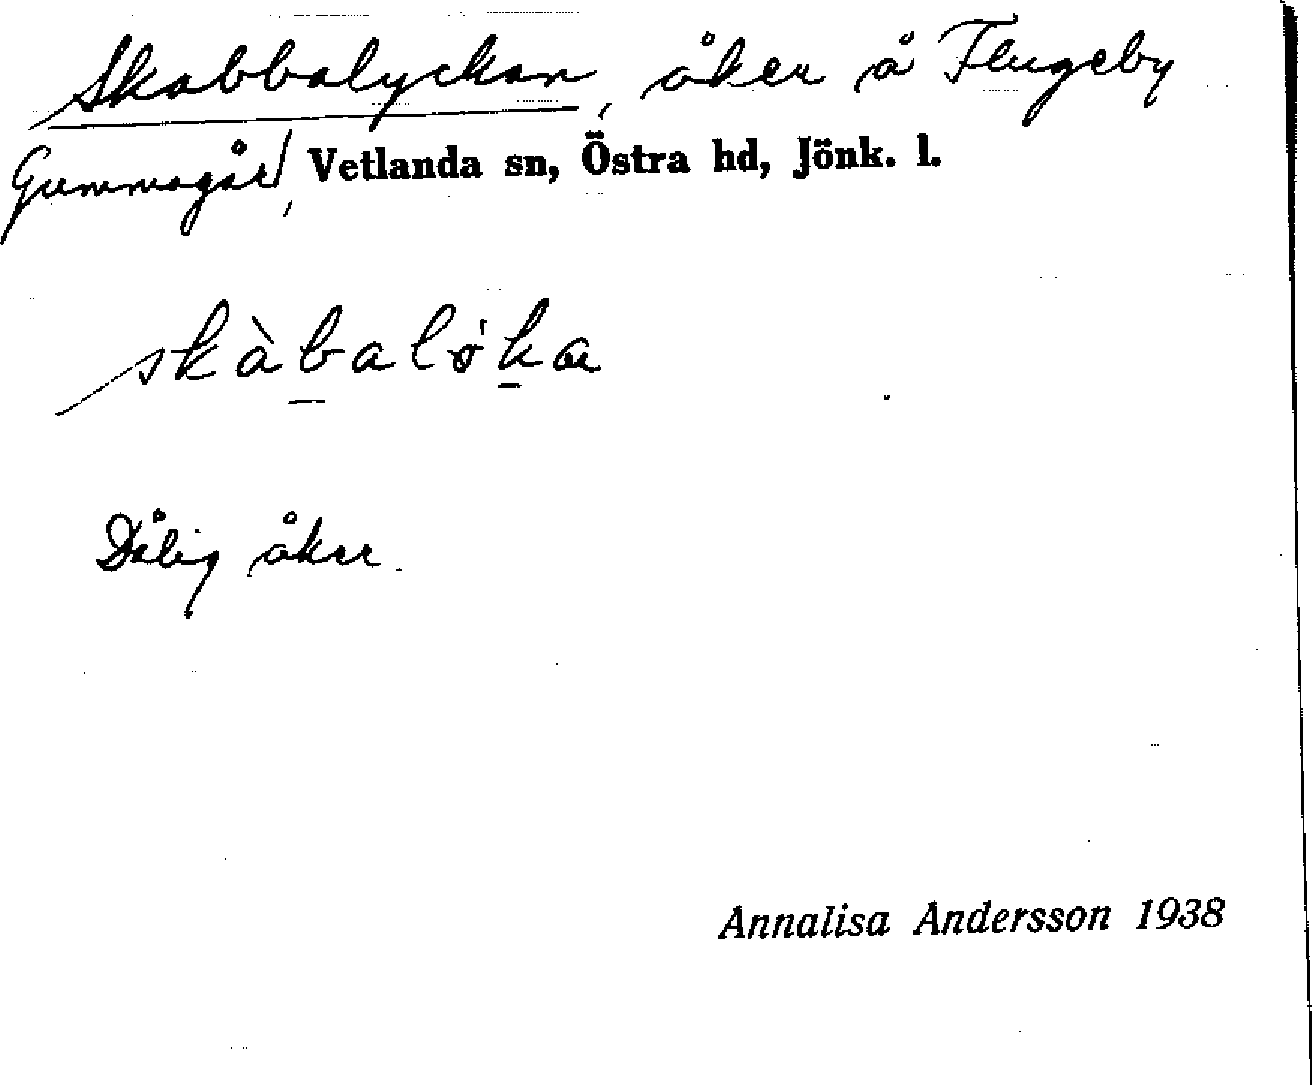 Skabbalyckan, åker å Flugeby
Gummagård, Vetlanda sn, Östra hd, Jönk. l.
skàbalǿka
Dålig åker.
Annalisa Andersson 1938